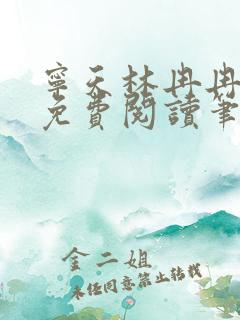 寧天林冉冉
免費閱讀筆
金二姐
未经同意禁止转载